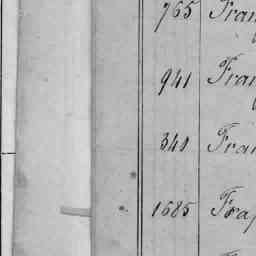 765 Fran
941 Fran
340 Fran
1685 Frap